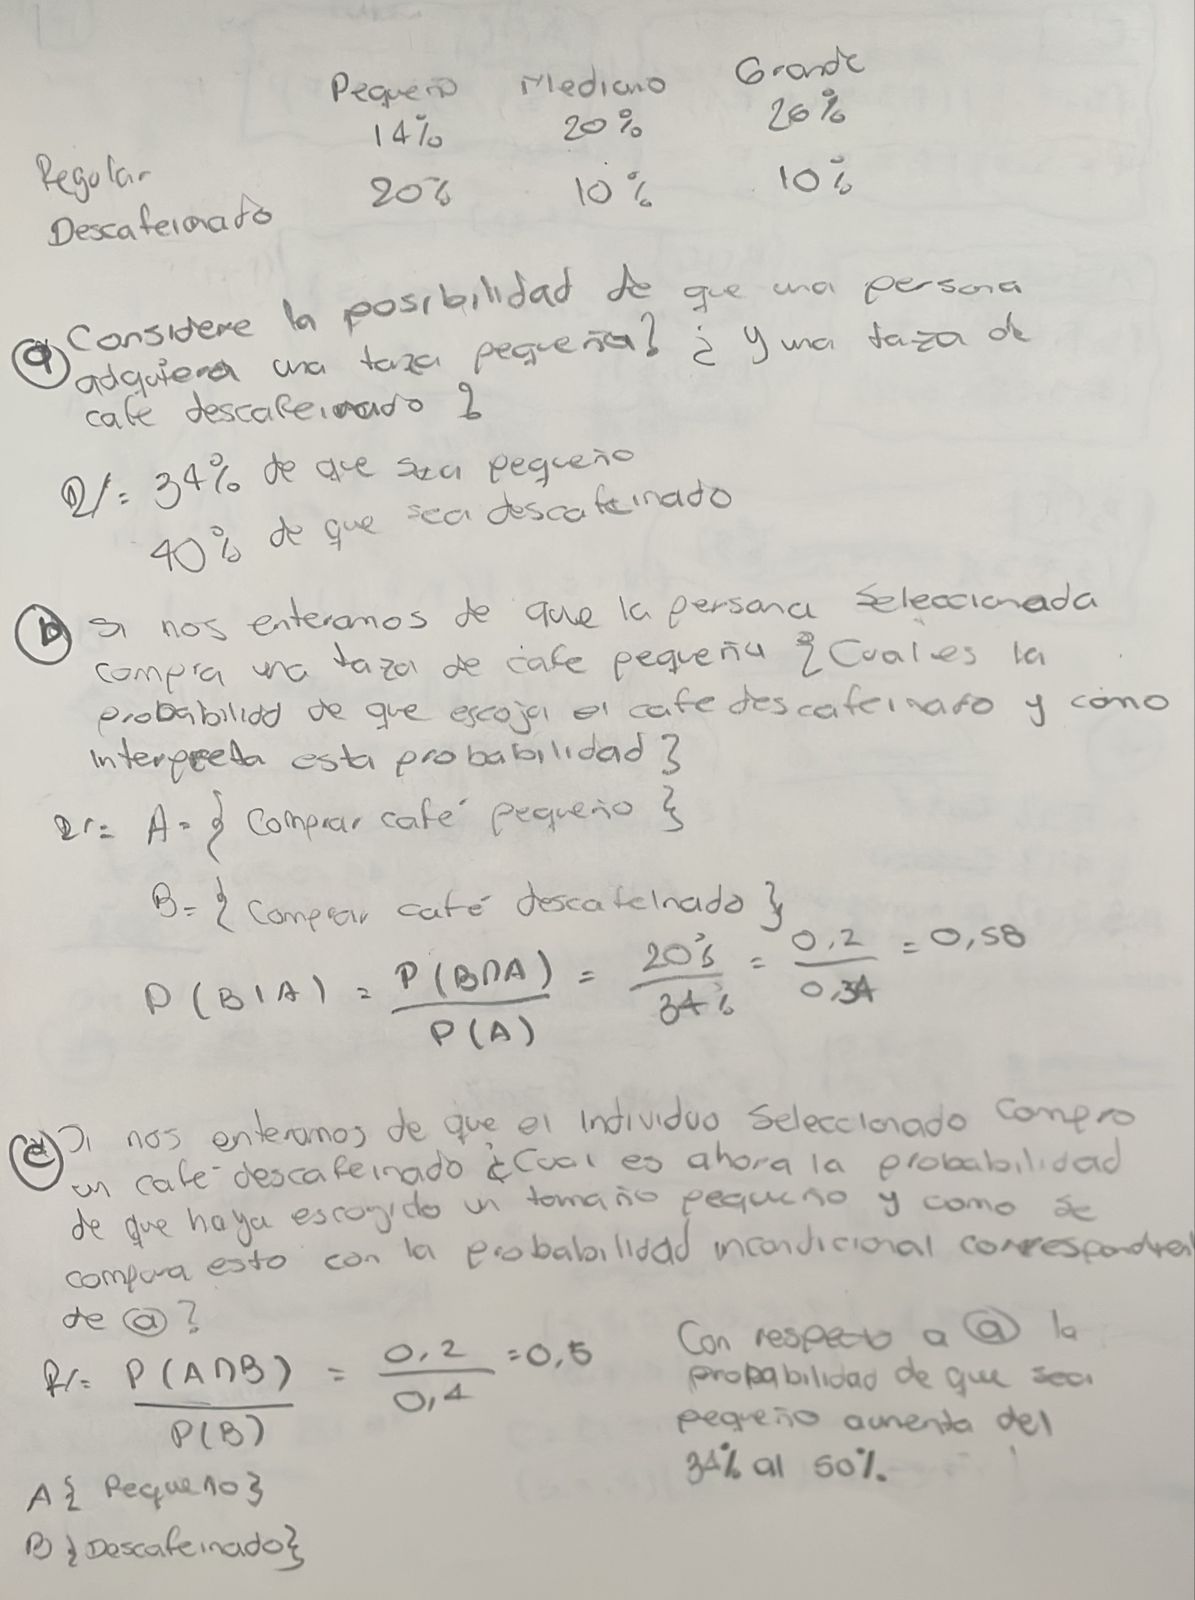 Pequeño Mediano Grande
14% 20% 26%
Regular
20% 10% 10%
Descafeinado
a Considere la posibilidad de que una persona
adquiera una taza pequeña? ¿ y una taza de
café descafeinado ?
R/= 34% de que sea pequeño
40% de que sea descafeinado
b Si nos enteramos de que la persona seleccionada
compra una taza de cafe pequeña ¿Cual es la
probabilidd de que escoja el cafe descafeinado y cómo
interpreta esta probabilidad?
R/= A= { Comprar café pequeño }
B= { Comprar café descafeinado }
P(B|A) = P(B∩A) / P(A) = 20% / 34% = 0,2 / 0,34 = 0,58
c Si nos enteramos de que el individuo seleccionado compro
un café descafeinado ¿Cual es ahora la probabilidad
de que haya escogido un tamaño pequeño y como se
compara esto con la probabilidad incondicional correspondien
de a ?
R/= P(A∩B) / P(B) = 0,2 / 0,4 = 0,5
A { Pequeño }
B { Descafeinado }
Con respecto a a la
probabilidad de que sea
pequeño aumenta del
34% al 50%.